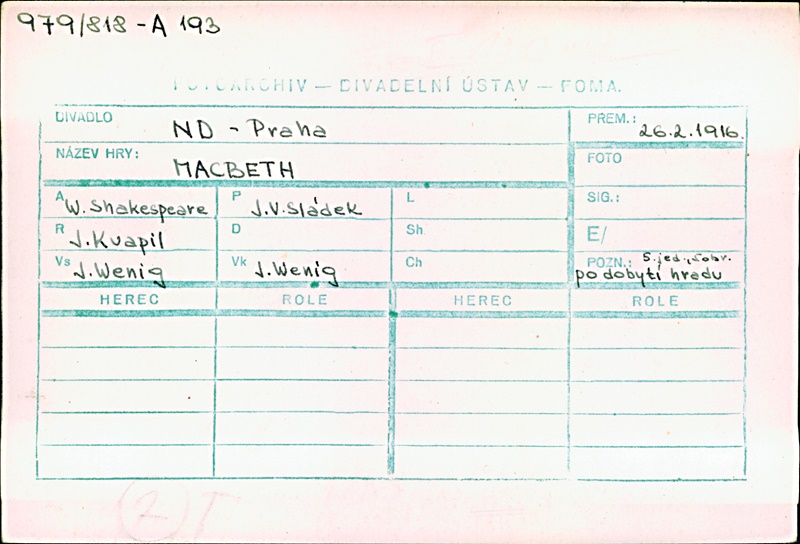 979/818 - A 193
FOTOARCHIV — DIVADELNÍ ÚSTAV — FOMA.
DIVADLO ND - Praha PREM.: 26.2.1916.
NÁZEV HRY: MACBETH FOTO
A W. Shakespeare P J.V. Sládek L SIG.:
R J. Kvapil D Sh E/
Vs J. Wenig Vk J. Wenig Ch POZN.: 5. jed.,
po dobytí hradu
HEREC ROLE HEREC ROLE
(2)